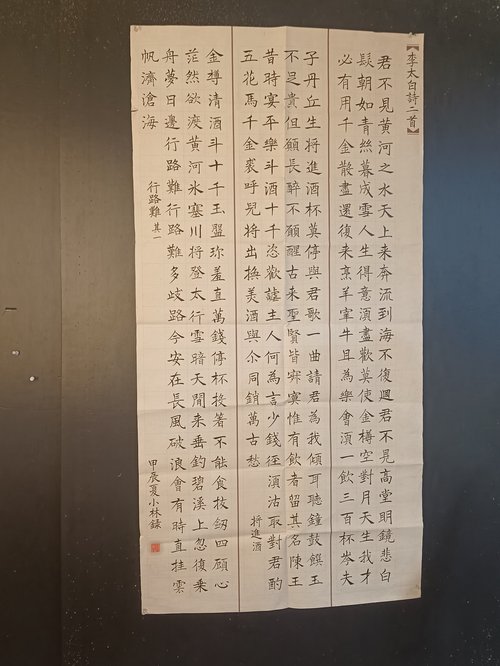 【李太白詩二首】
君不見黃河之水天上来奔流到海不復迴君不見高堂明鏡悲白
髮朝如青絲暮成雪人生得意須盡歡莫使金樽空對月天生我才
必有用千金散盡還復来烹羊宰牛且為樂會須一飲三百杯岑夫
子丹丘生將進酒杯莫停與君歌一曲請君為我傾耳聽鐘鼓饌玉
不足貴但願長醉不願醒古来聖賢皆寂寞惟有飲者留其名陳王
昔時宴平樂斗酒十千恣歡謔主人何為言少錢徑須沽取對君酌
五花馬千金裘呼兒將出換美酒與尒同銷萬古愁 將進酒
金樽清酒斗十千玉盤珍羞直萬錢停杯投箸不能食拔劒四顧心
茫然欲渡黃河氷塞川將登太行雪暗天閒来垂釣碧溪上忽復乘
舟夢日邊行路難行路難多歧路今安在長風破浪會有時直挂雲
帆濟滄海 行路難 其一 甲辰夏小林録